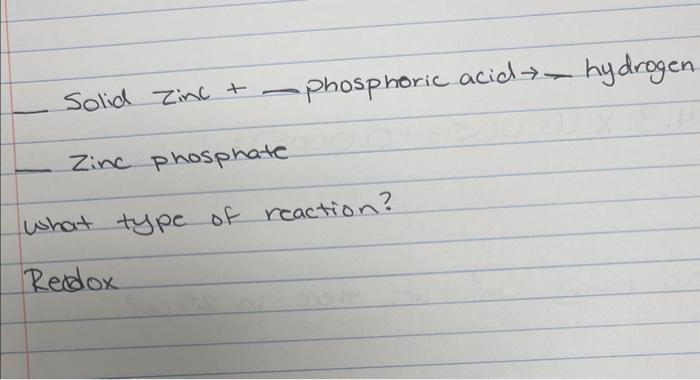 _ Solid Zinc + _ phosphoric acid → _ hydrogen
_ Zinc phosphate
what type of reaction?
Redox